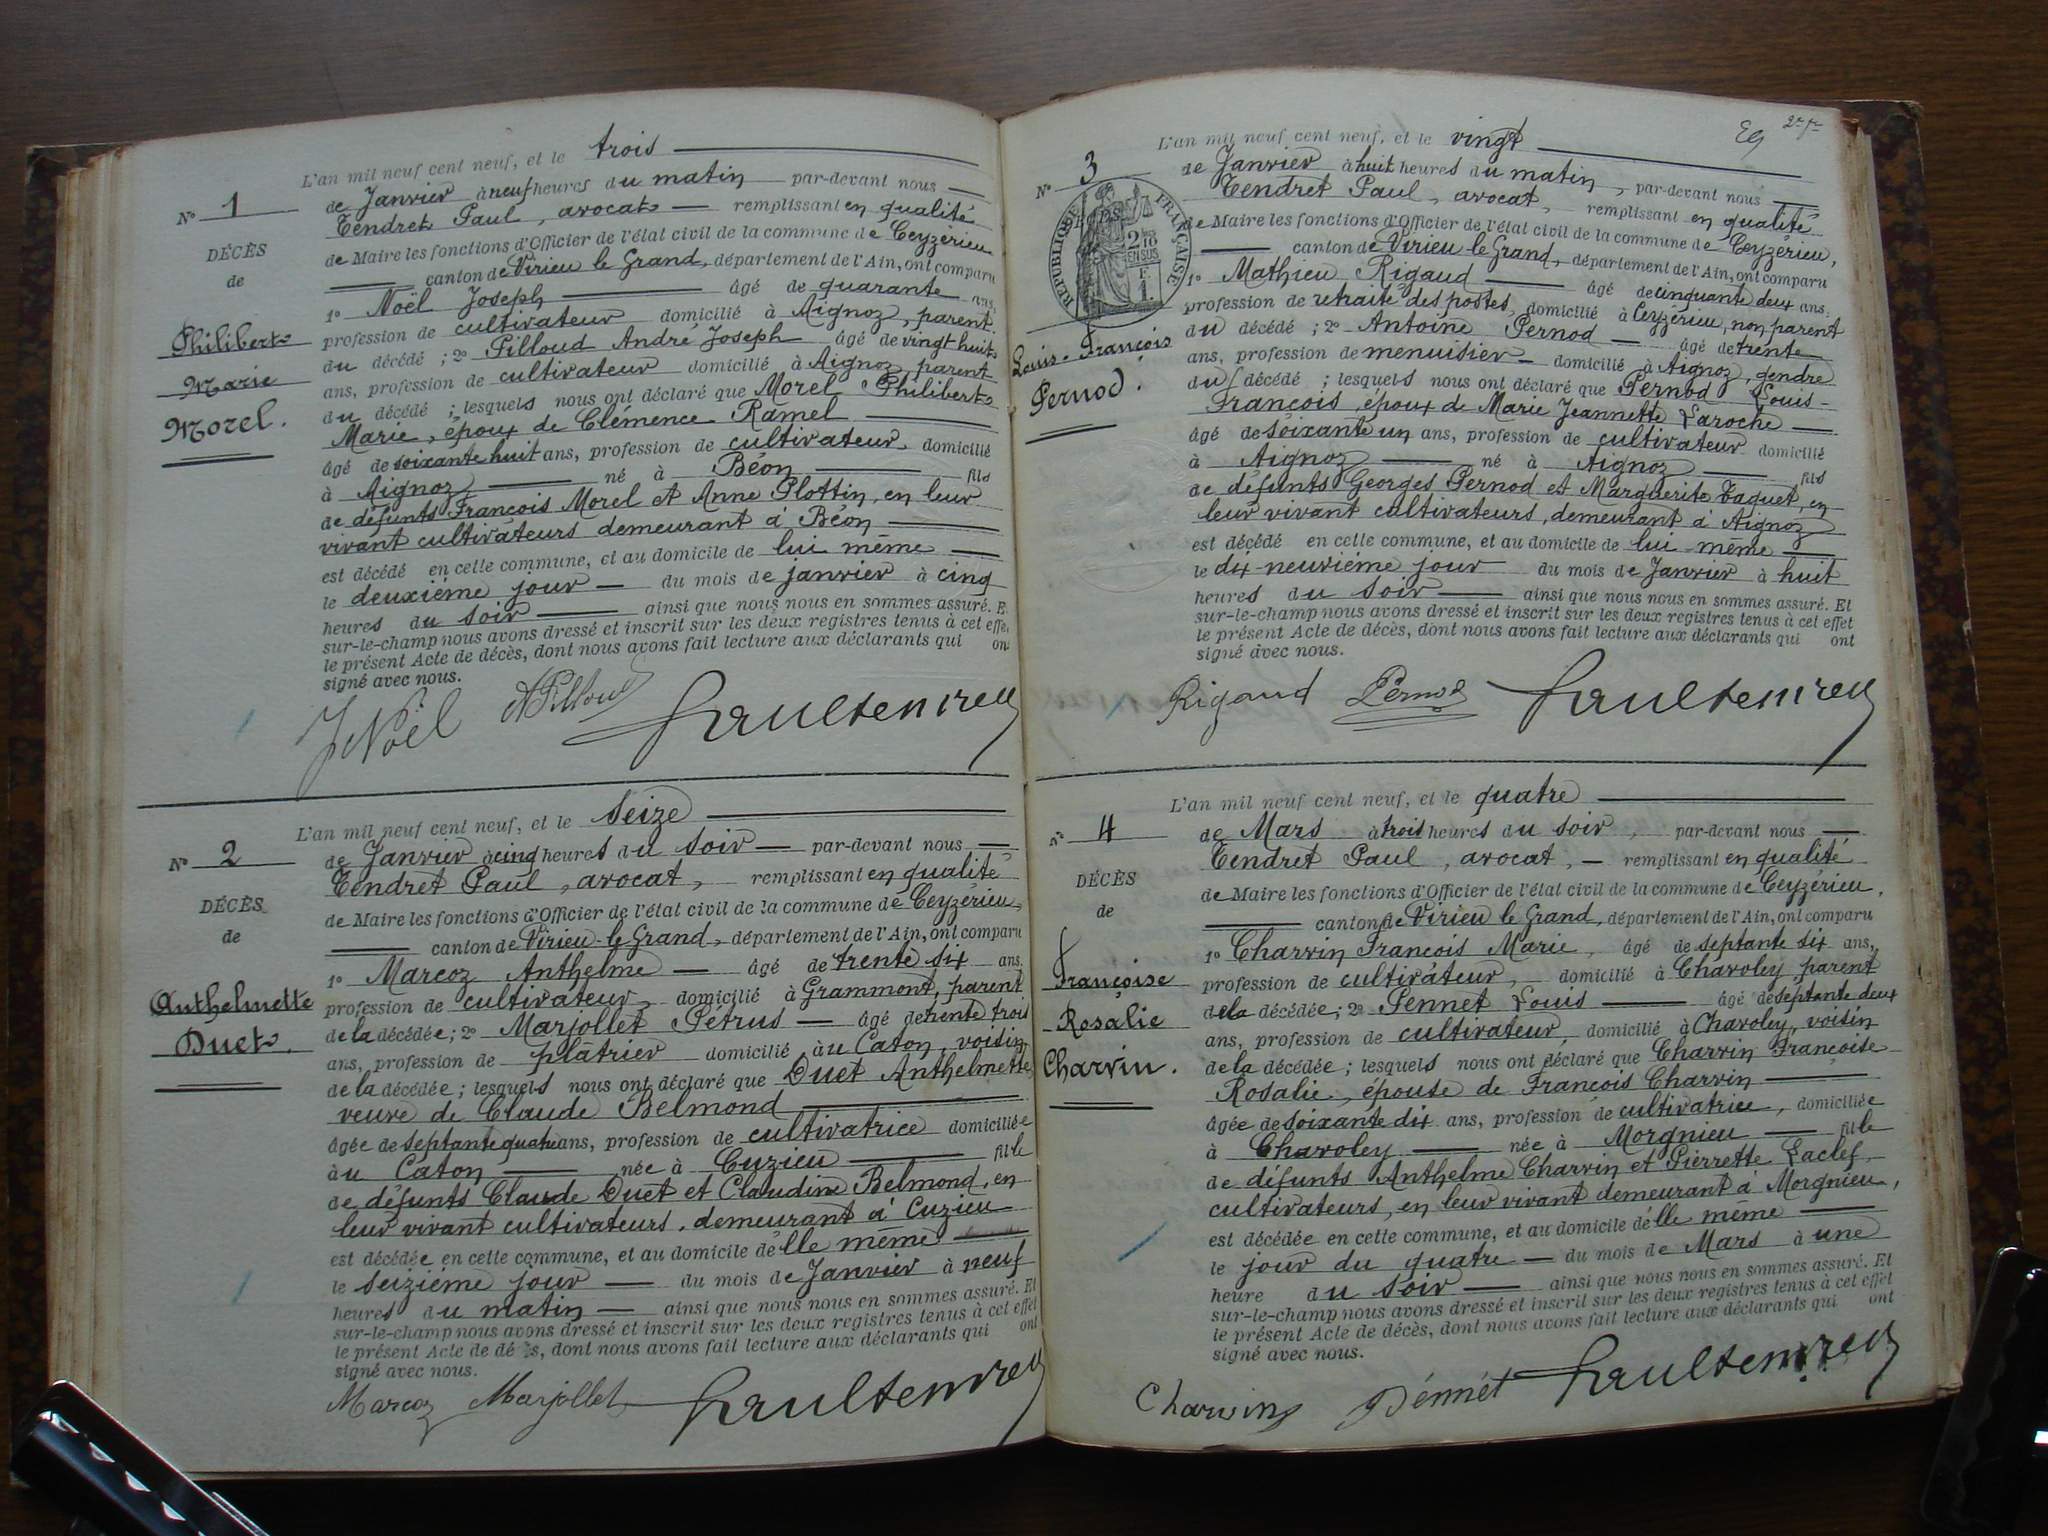 L'an mil neuf cent neuf, et le trois
de Janvier à neuf heures du matin par-devant nous
Tendret Paul, avocat remplissant en qualité
de Maire les fonctions d'Officier de l'état civil de la commune de Ceyzérieu
canton de Virieu le Grand, département de l'Ain, ont comparu
1º Noël Joseph âgé de quarante ans
profession de cultivateur domicilié à Aignoz, parent
du décédé ; 2º Pilloud André Joseph âgé de vingt huit
ans, profession de cultivateur domicilié à Aignoz, parent
du décédé ; lesquels nous ont déclaré que Morel Philibert
Marie, époux de Clémence Ramel
âgé de soixante huit ans, profession de cultivateur domicilié
à Aignoz né à Béon fils
de défunts François Morel et Anne Plottin, en leur
vivant cultivateurs demeurant à Béon
est décédé en cette commune, et au domicile de lui même
le deuxième jour du mois de janvier à cinq
heures du soir ainsi que nous nous en sommes assuré. E
sur-le-champ nous avons dressé et inscrit sur les deux registres tenus à cet effe
le présent Acte de décès, dont nous avons fait lecture aux déclarants qui on
signé avec nous.
Nº 1
DÉCÈS
de
Philibert
Marie
Morel.
J Noël A Pilloud
L'an mil neuf cent neuf, et le seize
de Janvier à cinq heures du soir par-devant nous
Tendret Paul, avocat, remplissant en qualité
de Maire les fonctions d'Officier de l'état civil de la commune de Ceyzérieu,
canton de Virieu-le-Grand, département de l'Ain, ont comparu
1º Marcoz Anthelme âgé de trente six ans.
profession de cultivateur, domicilié à Grammont, parent
de la décédée ; 2º Marjollet Pétrus âgé de trente trois
ans, profession de plâtrier domicilié au Caton, voisin
de la décédée ; lesquels nous ont déclaré que Duet Anthelmette
veuve de Claude Belmond
âgée de septante quatre ans, profession de cultivatrice domiciliée
au Caton née à Cuzieu fille
de défunts Claude Duet et Claudine Belmond, en
leur vivant cultivateurs, demeurant à Cuzieu
est décédée en cette commune, et au domicile d'elle même
le seizième jour du mois de Janvier à neuf
heures du matin ainsi que nous nous en sommes assuré. Et
sur-le-champ nous avons dressé et inscrit sur les deux registres tenus à cet effet
le présent Acte de dé s, dont nous avons fait lecture aux déclarants qui ont
signé avec nous.
Nº 2
DÉCÈS
de
Anthelmette
Duet.
Marcoz Marjollet
2e fe
L'an mil neuf cent neuf, et le vingt
de Janvier à huit heures du matin, par-devant nous
Tendret Paul, avocat, remplissant en qualité
de Maire les fonctions d'Officier de l'état civil de la commune de Ceyzérieu,
canton de Virieu le Grand, département de l'Ain, ont comparu
1º Mathieu Rigaud âgé de cinquante deux ans.
profession de retraité des postes, domicilié à Ceyzérieu, non parent
du décédé ; 2º Antoine Pernod âgé de trente
ans, profession de menuisier domicilié à Aignoz, gendre
du décédé ; lesquels nous ont déclaré que Pernod Louis-
François, époux de Marie Jeannette Laroche
âgé de soixante un ans, profession de cultivateur domicilié
à Aignoz né à Aignoz fils
de défunts Georges Pernod et Marguerite Taquet, en
leur vivant cultivateurs, demeurant à Aignoz
est décédé en cette commune, et au domicile de lui-même
le dix-neuvième jour du mois de Janvier à huit
heures du soir ainsi que nous nous en sommes assuré. Et
sur-le-champ nous avons dressé et inscrit sur les deux registres tenus à cet effet
le présent Acte de décès, dont nous avons fait lecture aux déclarants qui ont
signé avec nous.
Nº 3
RÉPUBLIQUE FRANÇAISE
2/10
EN SUS
F
1
Louis-François
Pernod.
Rigaud Pernod
L'an mil neuf cent neuf, et le quatre
de Mars à trois heures du soir, par-devant nous
Tendret Paul, avocat, remplissant en qualité
de Maire les fonctions d'Officier de l'état civil de la commune de Ceyzérieu,
canton de Virieu le Grand, département de l'Ain, ont comparu
1º Charvin François Marie, âgé de septante six ans,
profession de cultivateur, domicilié à Chavoley, parent
de la décédée ; 2º Pennet Louis âgé de septante deux
ans, profession de cultivateur, domicilié à Chavoley, voisin
de la décédée ; lesquels nous ont déclaré que Charvin Françoise
Rosalie, épouse de François Charvin
âgée de soixante dix ans, profession de cultivatrice, domiciliée
à Chavoley née à Morgnieu fille
de défunts Anthelme Charvin et Pierrette Laclef
cultivateurs, en leur vivant demeurant à Morgnieu,
est décédée en cette commune, et au domicile d'elle même
le jour du quatre du mois de Mars à une
heure du soir ainsi que nous nous en sommes assuré. Et
sur-le-champ nous avons dressé et inscrit sur les deux registres tenus à cet effet
le présent Acte de décès, dont nous avons fait lecture aux déclarants qui ont
signé avec nous.
Nº 4
DÉCÈS
de
Françoise
-Rosalie
Charvin.
Charvin Pénnét